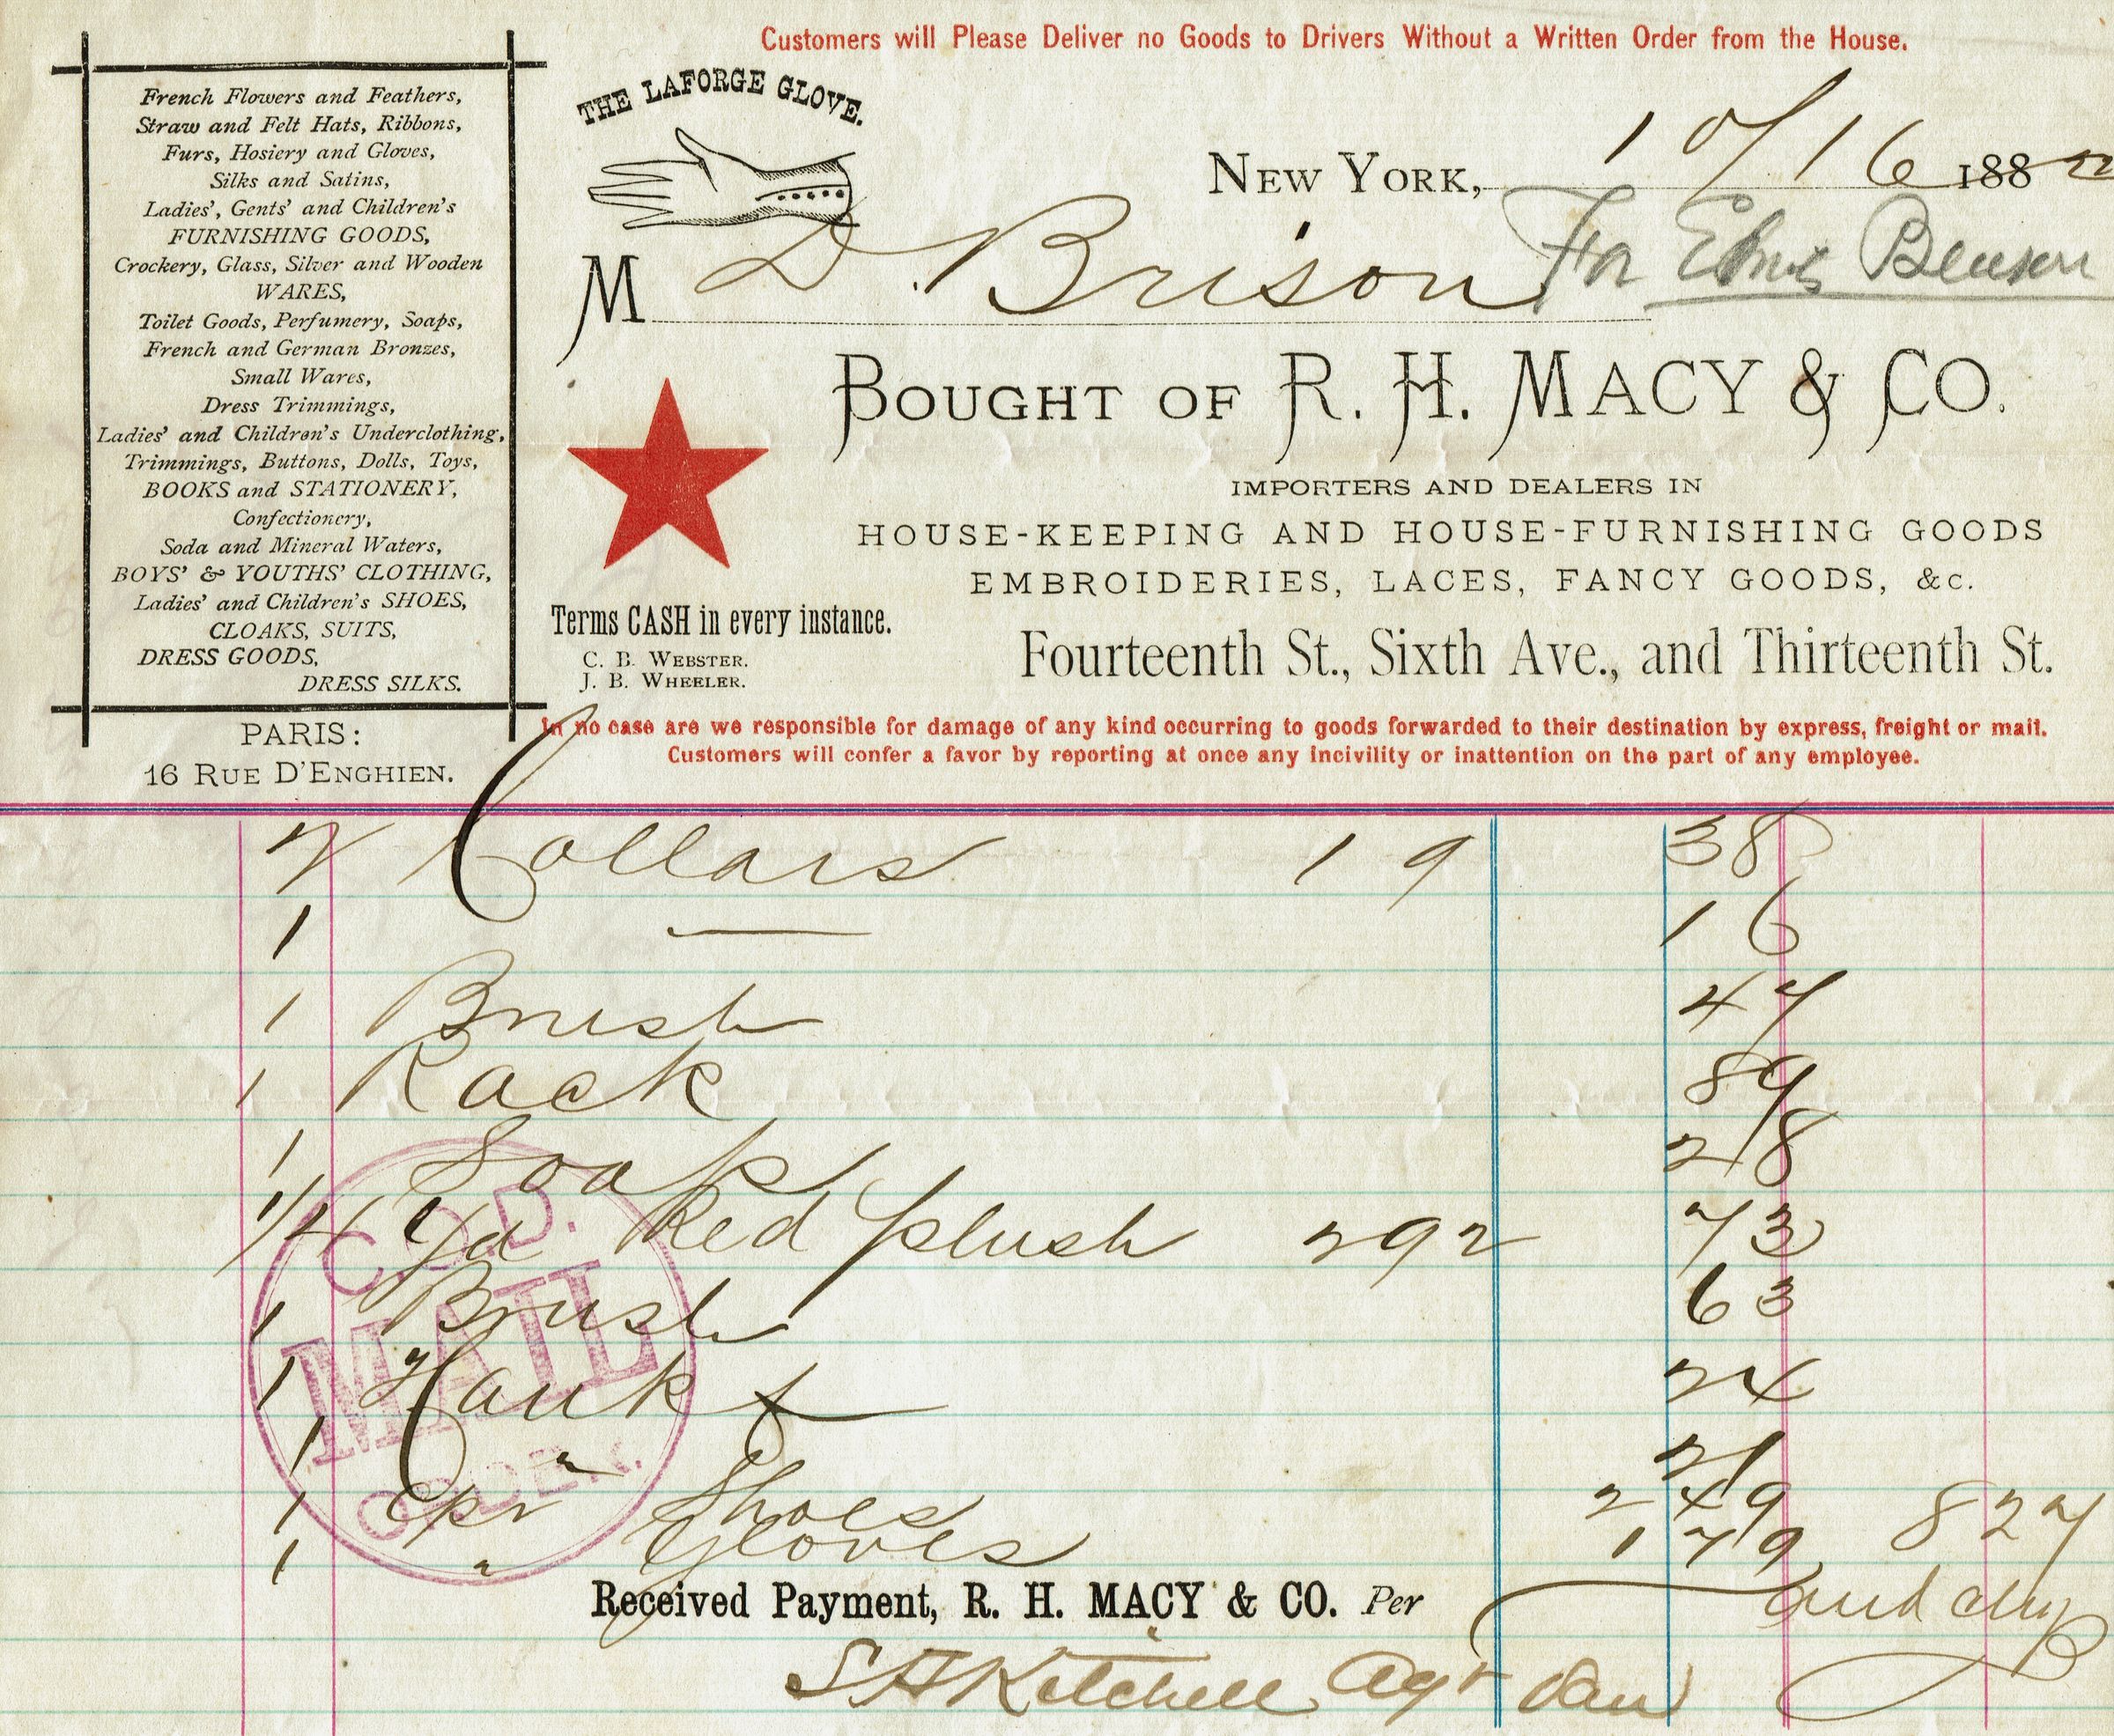 Customers will Please Deliver no Goods to Drivers Without a Written Order from the House.
French Flowers and Feathers,
Straw and Felt Hats, Ribbons,
Furs, Hosiery and Gloves,
Silks and Satins,
Ladies', Gents' and Children's
FURNISHING GOODS,
Crockery, Glass, Silver and Wooden
WARES,
Toilet Goods, Perfumery, Soaps,
French and German Bronzes,
Small Wares,
Dress Trimmings,
Ladies' and Children's Underclothing,
Trimmings, Buttons, Dolls, Toys,
BOOKS and STATIONERY,
Confectionery,
Soda and Mineral Waters,
BOYS' & YOUTHS' CLOTHING,
Ladies' and Children's SHOES,
CLOAKS, SUITS,
DRESS GOODS,
DRESS SILKS.
PARIS:
16 RUE D'ENGHIEN.
THE LAFORGE GLOVE.
NEW YORK, 10/16 1882
M D. Brison For Benson
BOUGHT OF R. H. MACY & CO.
IMPORTERS AND DEALERS IN
HOUSE-KEEPING AND HOUSE-FURNISHING GOODS
EMBROIDERIES, LACES, FANCY GOODS, &c.
Terms CASH in every instance.
C. B. WEBSTER.
J. B. WHEELER.
Fourteenth St., Sixth Ave., and Thirteenth St.
In no case are we responsible for damage of any kind occurring to goods forwarded to their destination by express, freight or mail.
Customers will confer a favor by reporting at once any incivility or inattention on the part of any employee.
2 Collars 19 38
1 — 16
1 Brush 47
1 Rack 89
1 Soap 28
1/4 yd Red plush 292 73
1 Brush 63
1 Hank 24
1 " 21
1 pr Shoes 2 49 827
1 " Gloves 1 79
C.O.D.
MAIL
ORDER.
Received Payment, R. H. MACY & CO. Per
and chg
S H Kitchell Agt